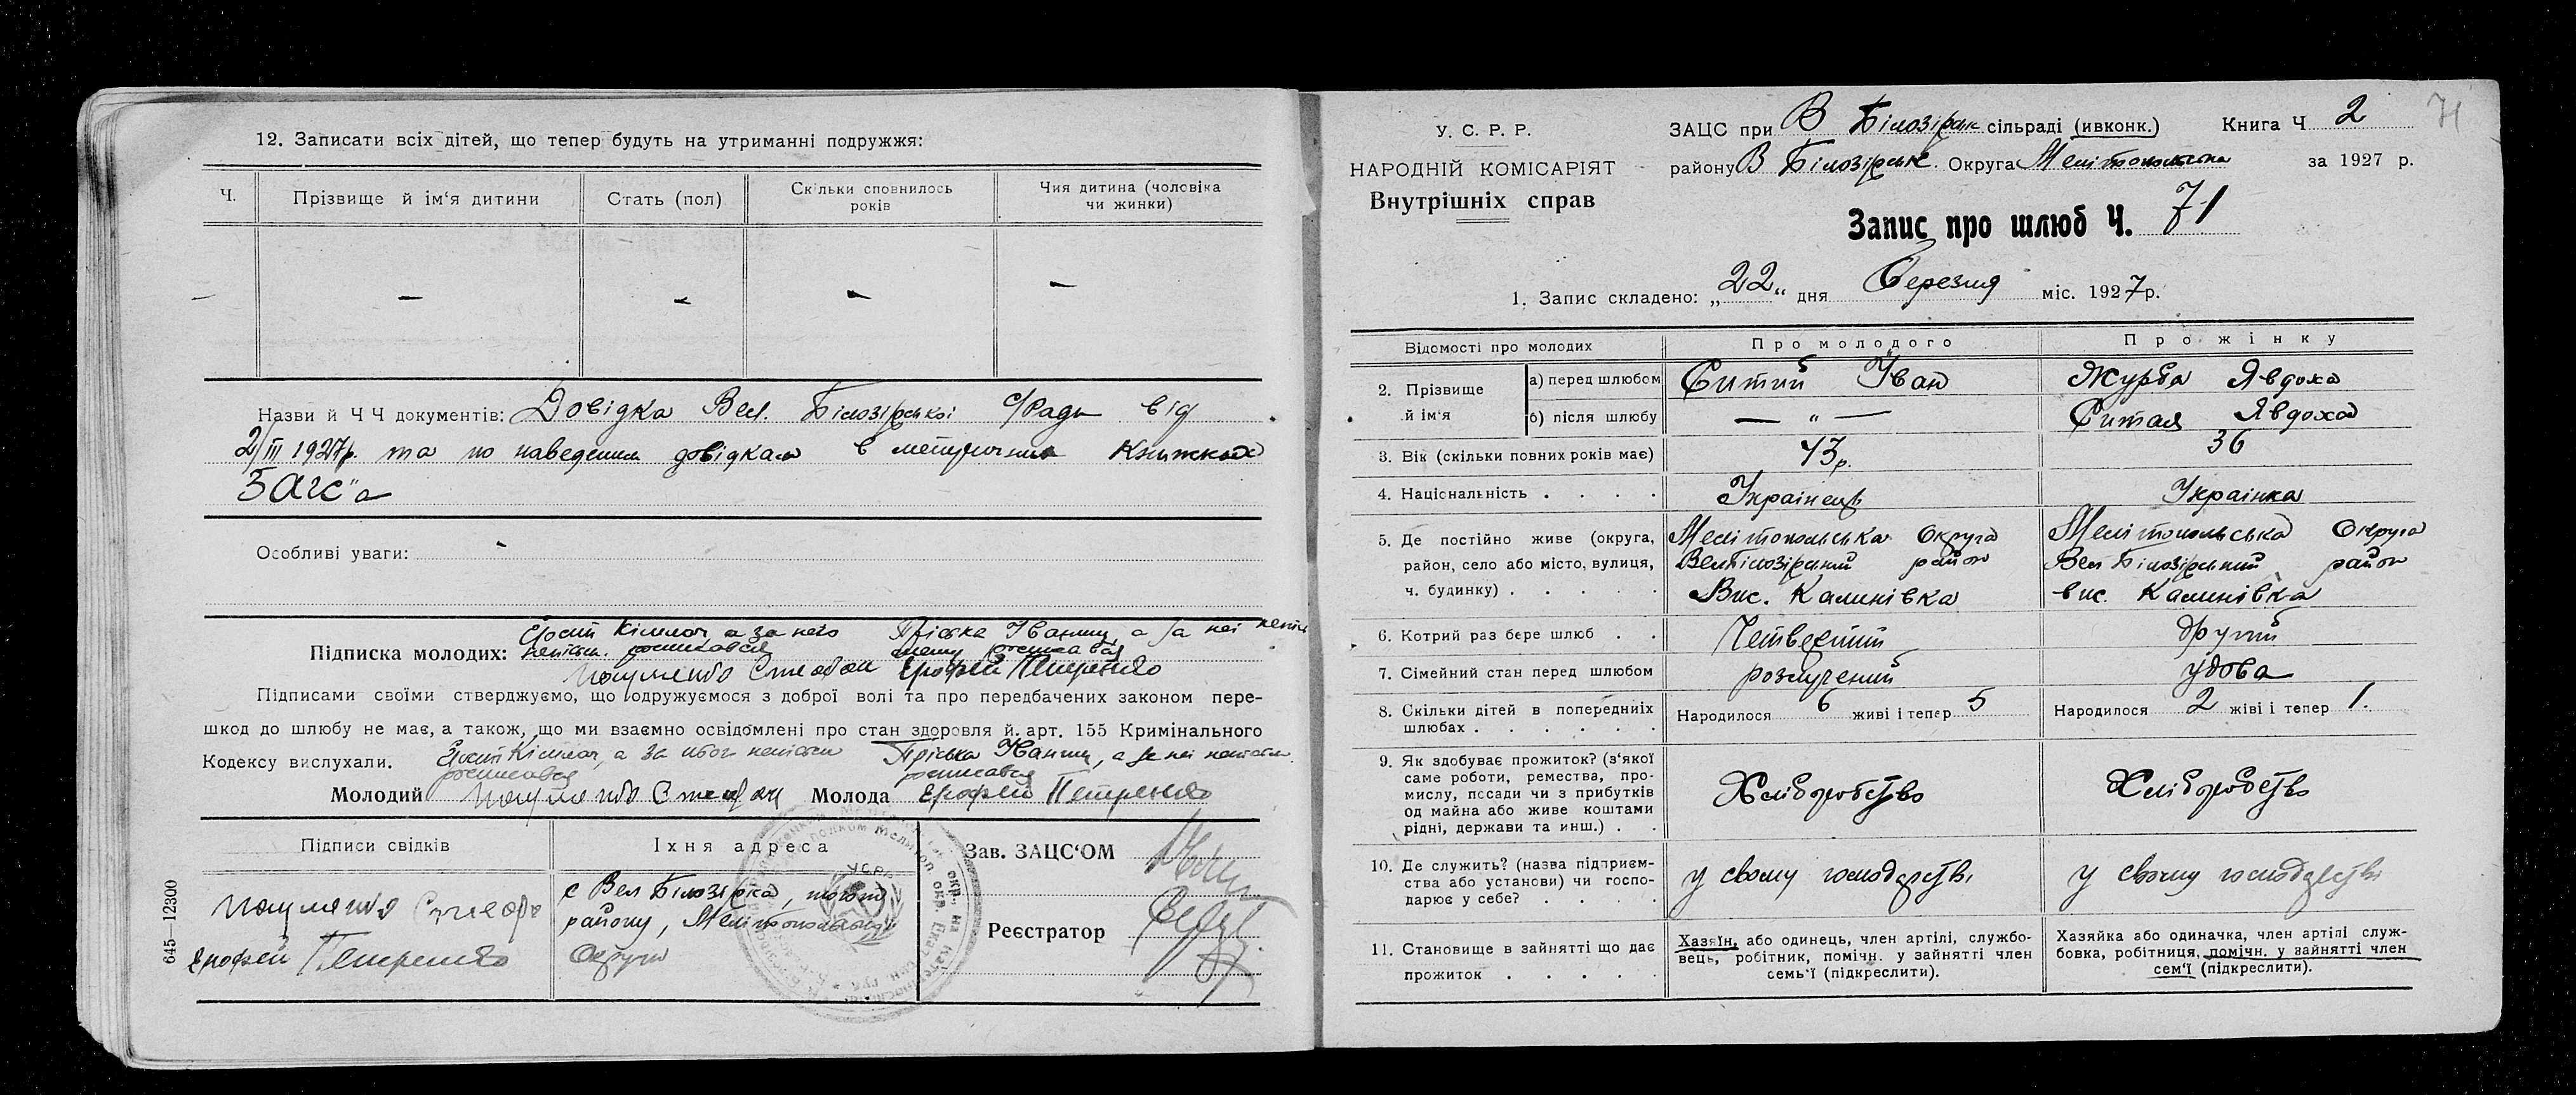 12. Записати всіх дітей, що тепер будуть на утриманні подружжя:
Ч.
Прізвище й ім'я дитини
Стать (пол)
Скільки сповнилось
років
Чия дитина (чоловіка
чи жинки)
— — — — —
Назви й Ч Ч документів: Довідка Вел. Білозірської с/Ради від
2/III 1927р. та по наведеним довідкам в метричних книжках
ЗАГС"а
Особливі уваги: -
а за него Пріська а за неі
Підписка молодих: росписався
Стефан Ерофей Петренко
Підписами своїми стверджуємо, що одружуємося з доброї волі та про передбачених законом пере-
шкод до шлюбу не має, а також, що ми взаємно освідомлені про стан здоровля й. арт. 155 Кримінального
Кодексу вислухали. а за Пріська а за неі
росписався росписався
Молодий Стефан Молода Ерофей Петренко
Підписи свідків
Їхня адреса
Зав. ЗАЦС'ОМ
с Вел Білозірка, того ж
району, Мелітопольської
Округи
Ерофей Петренко
Реєстратор
УСРР
645—12300
У. С. Р. Р.
НАРОДНІЙ КОМІСАРІЯТ
Внутрішніх справ
ЗАЦС при В Білозірськ сільраді (ивконк.) Книга Ч 2
71
району В Білозірськ. Округа Мелітопольська за 1927 р.
Запис про шлюб Ч. 71
1. Запис складено: „22“ дня Березня міс. 1927р.
Відомості про молодих
Про молодого
Про жінку
2. Прізвище
й ім'я
а) перед шлюбом
Ситий Іван
Журба Явдоха
б) після шлюбу
— " —
Ситая Явдоха
3. Вік (скільки повних років має)
43р.
36
4. Національність . . . .
Українець
Українка
5. Де постійно живе (округа,
район, село або місто, вулиця,
ч. будинку) . . . . .
Мелітопольська Округа
Вел Білозірський район
Вис. Калинівка
Мелітопольська Округа
Вел Білозірський район
вис. Калинівка
6. Котрий раз бере шлюб . .
Четвертий
другий
7. Сімейний стан перед шлюбом
розлучений
удова
8. Скільки дітей в попередніїх
шлюбах . . . . . .
Народилося 6 живі і тепер 5
Народилося 2 жіві і тепер 1.
9. Як здобуває прожиток? (з'якої
саме роботи, ремества, про-
мислу, посади чи з прибутків
од майна або живе коштами
рідні, держави та инш.) . .
Хліборобство
Хліборобство
10. Де служить? (назва підприєм-
ства або установи) чи госпо-
дарює у себе? . . . .
у свому господарстві
у свому господарстві
11. Становище в зайнятті що дає
прожиток . . . . .
Хазяїн, або одинець, член артілі, службо-
вець, робітник, помічн. у зайнятті член
семь'ї (підкреслити).
Хазяйка або одиначка, член артілі служ-
бовка, робітниця, помічн. у зайнятті член
сем'ї (підкреслити).